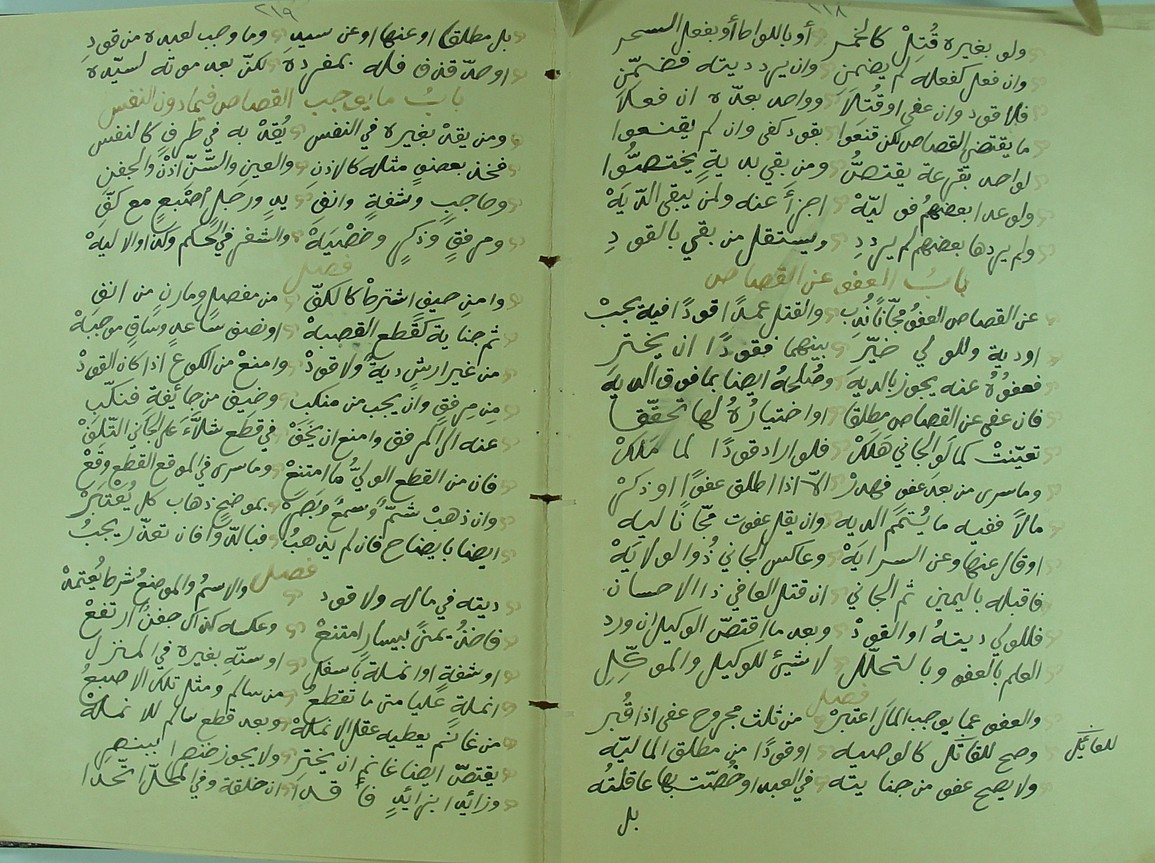 ٢١٨
ولو بغيره قُتِلْ كالخمرِ أو باللواط أو بفعل السحرِ
وان فعل كفعله لم يضمنِ وان يرد ديته فضمّنِ
فلا قود وان عفى او قُتلا وواحد بعده ان فعلا
ما يقتضي القصاص لكن قنعوا بقود كفى وان لم يقنعوا
لواحد بقرعة يقتصُّ ومن بقي بدية يختصُّوا
ولو عدا بعضهم فوليّهْ اجزأ عنه ولمن يبقى الدّيَهْ
ولم يردها بعضهم لم يرددِ ويستقل من بقي بالقودِ
بابُ العفو عن القصاص
عن القصاص العفوُ مجّاناً نُدِبْ والقتل عمداً قودًا فيه يجبْ
او دية وللولي خيّرِ بينهما فقودًا ان يخترِ
فعفوُهُ عنه يجوز بالديه وصُلحهُ ايضا بما فوق الديه
فان عفى عن القصاص مطلقا او اختيارُهُ لها تحقّقا
تعيّنتْ كما لو الجاني هَلَكْ فلو اراد قودًا لما مَلَكْ
وما سرى من بعد عفو فهدرْ الّا اذا اطلق عفوًا او ذكرْ
مالاً ففيه ما يُتمّم الديه وان يقل عفوت مجّانا ليه
او قال عنها وعن السرايَهْ وعاكس الجاني ذُو الولايَهْ
فاقبله باليمين ثم الجاني ان قتل العافي ذا الاحسان
فللولي ديتهُ او القودْ وبعد ما اقتصّ الوكيل ان ورد
العلم بالعفو وبالتحلّل لا شيئ للوكيل والموكّلِ
فصل
والعفو عما يوجب المال اعتبرْ من ثلث مجروح عفى اذا قُبر
وصح للقاتل كالوصيه او قودًا من مطلق الماليّه
للقاتل
ولا يصح عفو من جنايته في العبد او خُصّت بها عاقلتُه
بل
٢١٩
بل مطلقا او عنها او عن سيدِ وما وجب لعبده من قودِ
او حدّ قذف فله بمفرده لكنّ بعد موته لسيّده
بابُ ما يوجب القصاص فيما دون النفس
ومن يقد بغيره في النفس يُقدْ به في طرفٍ كالنفس
فخذ بعضوٍ مثله كالاذنِ والعين والسّنّ اذنْ والجفنِ
وحاجبٍ وشفةٍ وانفِ يدٍ ورجلٍ اصبعٍ مع كفّ
ومرفقٍ وذكرٍ وخصْيَهْ والشفر في الحكم وكذا والاليَهْ
فصل
وامن حيفٍ اشترطْ كالكفّ من مفصل ومارنٍ من انفِ
ثم جناية كقطع القصبهْ او نصف ساعدٍ وساقٍ موجبهْ
من غير ارشٍ ديةً ولا قودْ وامنعْ من الكوع اذا كان القودْ
من مرفقٍ وان يجب من منكب وخيف من جائفةٍ فنكّب
عنه الى المرفق وامنع ان يحَقْ في قطع شلّاءَ على الجاني التّلَقْ
فان من القطع الوليُّ ما امتنعْ وما سرى في الموقع القطع وقعْ
وان ذهبْ شمٌّ وسمعٌ وبَصَرْ بموضحٍ ذهاب كل يُعْتَبَرْ
ايضا بايضاح فان لم يذهبُ فبالدّوا فان تعذّر يجبُ
ديته في ماله ولا قود
فصل
والاسمُ والموضعُ شرطا يُعتمدْ
فاخذُ يمنىً بيسارٍ امتنعْ وعكسه كذاك خفنٌ ارتفعْ
او شفةٍ او انملة بأسفل او سنّه بغيره في المنزل
انملة عليا متى ما تقطعُ من سالمٍ ومثل تلك الاصبعُ
من غانمٍ يعطيه عقل الانملهْ وبعد قطع سالم للانملهْ
يقتصّ ايضا غانم ان يخترِ ولا يجوز خنصر ببنصرِ
وزائد بزائدٍ فأفسدا ان خلقة وفي المحلّ اتّحدا